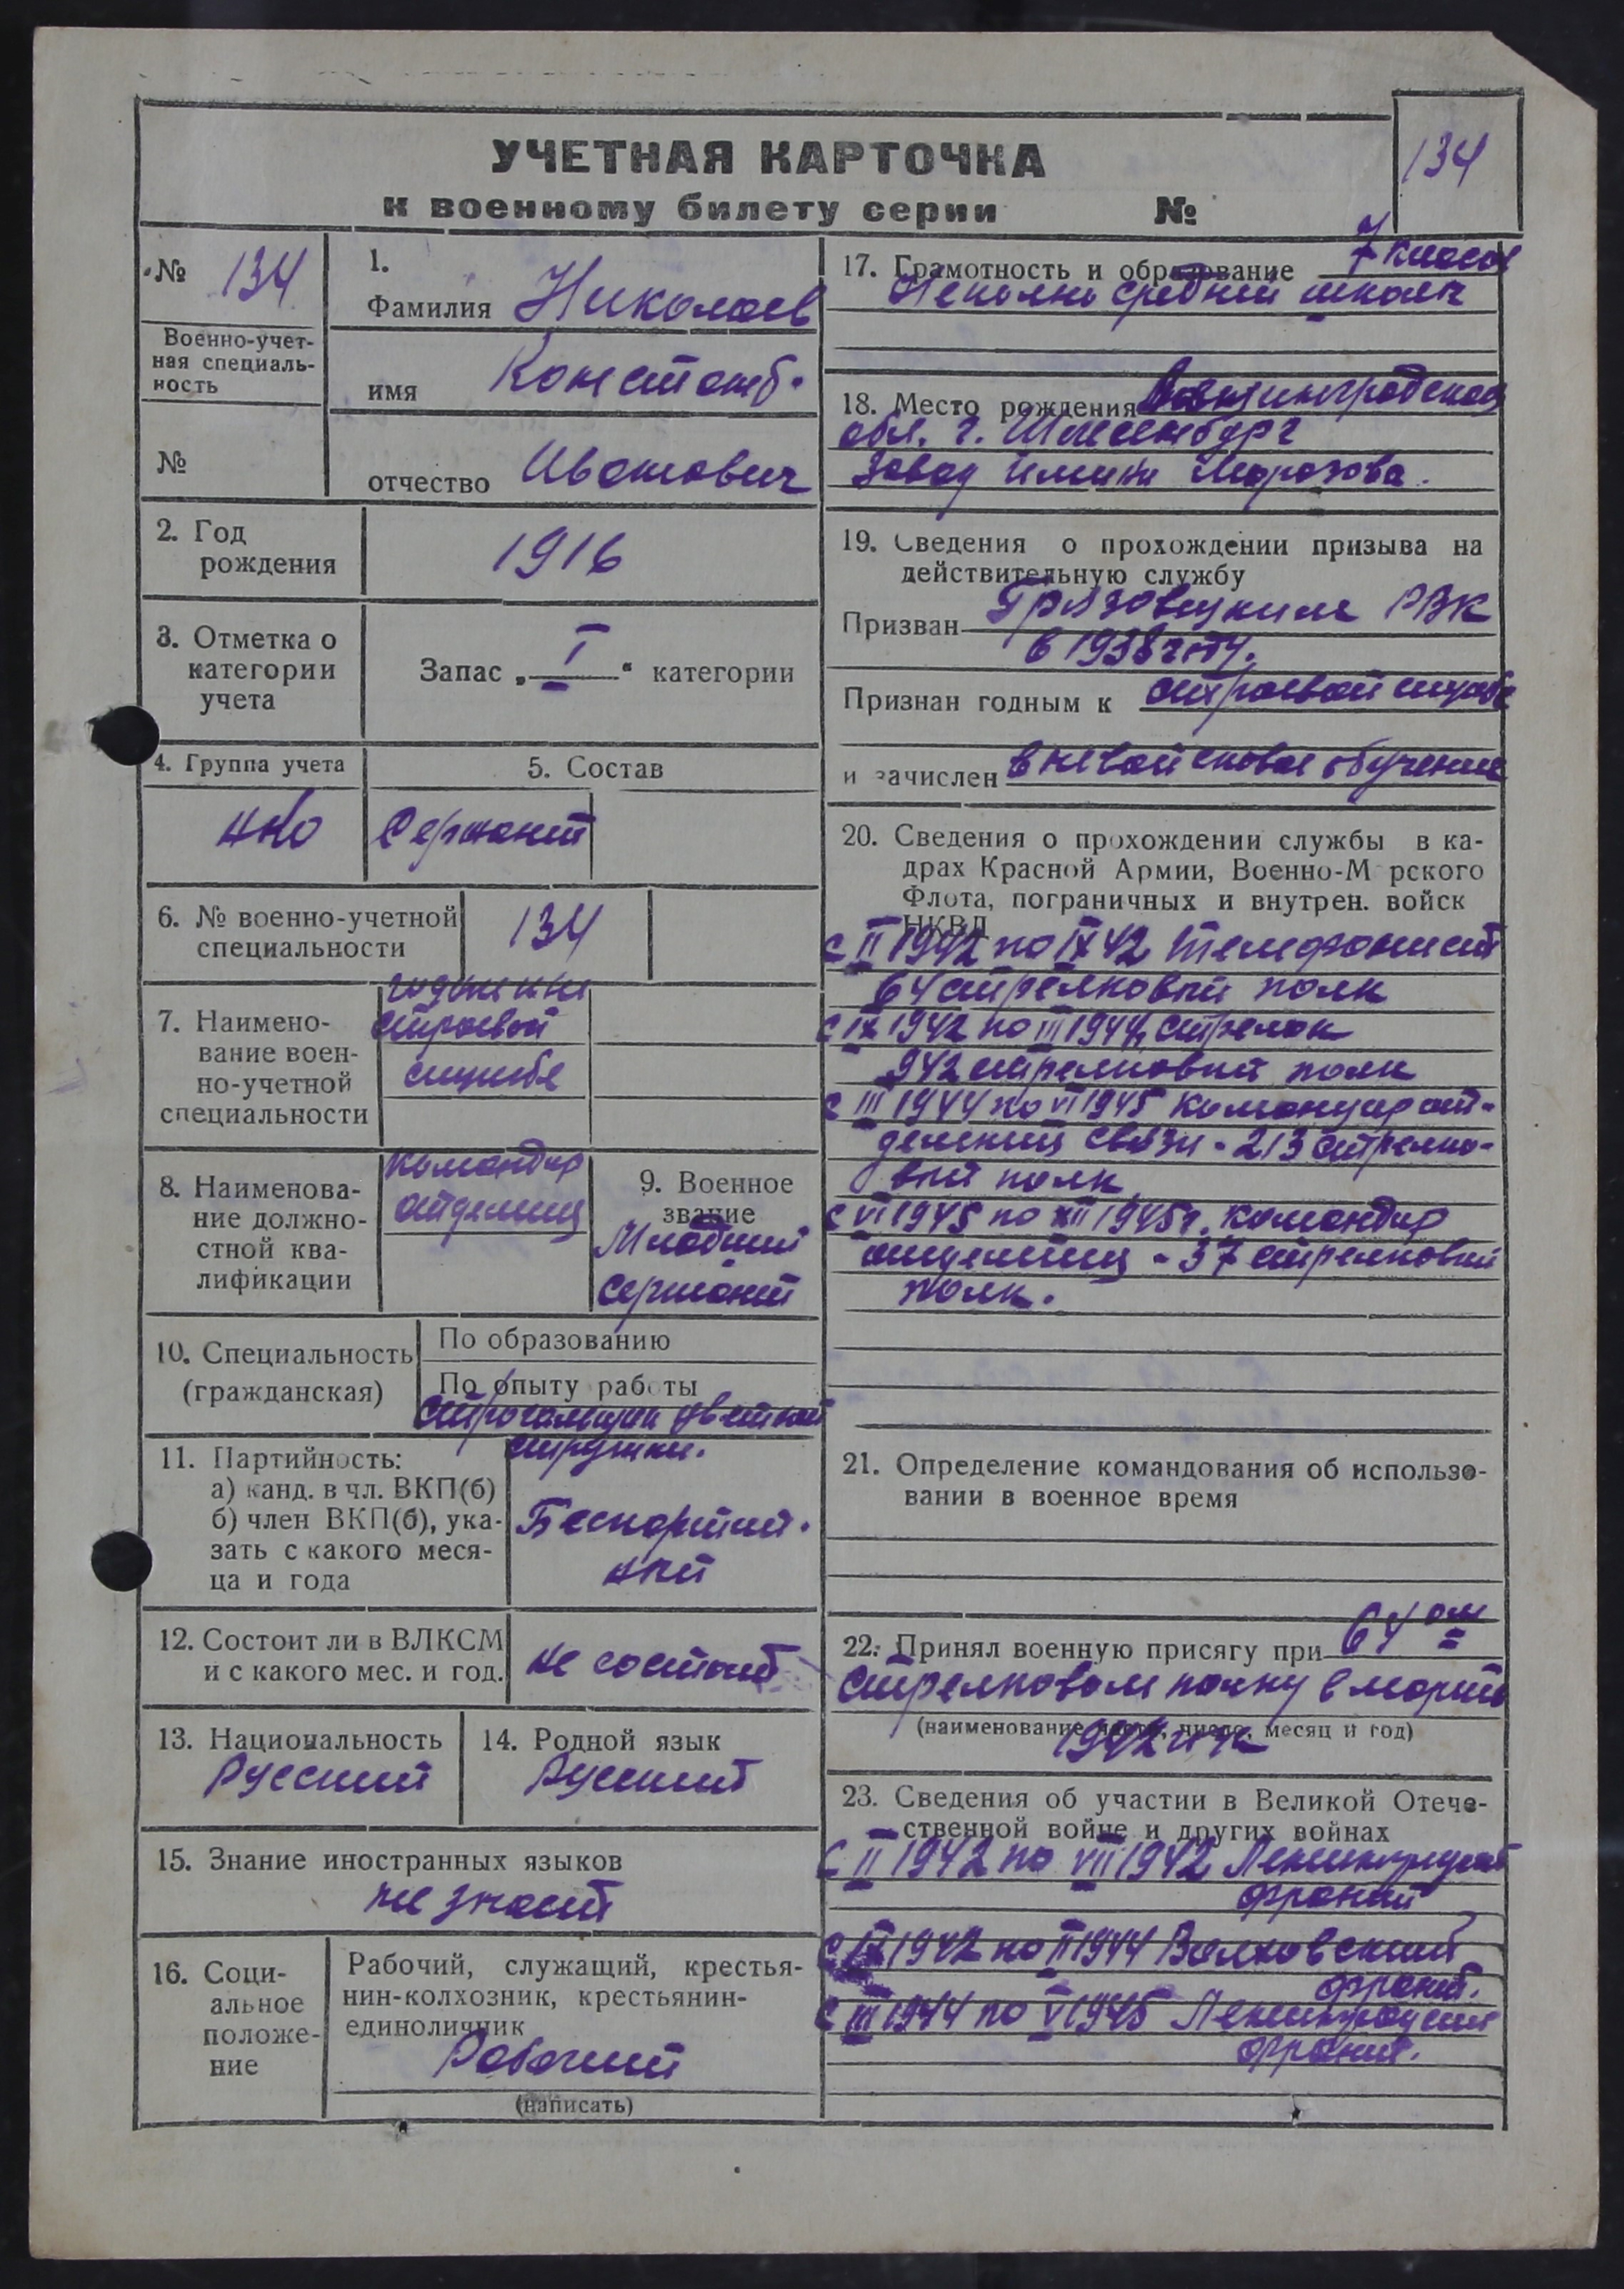 УЧЕТНАЯ КАРТОЧКА
к военному билету серии №
134
№ 134
Военно-учет-
ная специаль-
ность
№
1.
Фамилия Николаев
имя Констант.
отчество Иванович
2. Год
рождения
1916
3. Отметка о
категории
учета
Запас „ I “ категории
4. Группа учета
НКО
5. Состав
Сержант
6. № военно-учетной
специальности
134
7. Наимено-
вание воен-
но-учетной
специальности
строевой
службе
8. Наименова-
ние должно-
стной ква-
лификации
командир
9. Военное
звание
Младший
сержант
10. Специальность
(гражданская)
По образованию
По опыту работы
стружки.
11. Партийность:
а) канд. в чл. ВКП(б)
б) член ВКП(б), ука-
зать с какого меся-
ца и года
Беспартий-
ный
12. Состоит ли в ВЛКСМ
и с какого мес. и год.
не состоит
13. Национальность
Русский
14. Родной язык
Русский
15. Знание иностранных языков
не знает
16. Соци-
альное
положе-
ние
Рабочий, служащий, крестья-
нин-колхозник, крестьянин-
единоличник
Рабочий
(написать)
17. Грамотность и образование 7 класса
средний школы
18. Место рождения
обл. г. Шлиссенбург
Завод имини Морозова.
19. Сведения о прохождении призыва на
действительную службу
Призван Грязовецким РВК
в 1938 году.
Признан годным к строевой службе
и зачислен обучение
20. Сведения о прохождении службы в ка-
драх Красной Армии, Военно-М рского
Флота, пограничных и внутрен. войск
НКВД
с II 1942 по IX 42 Телефонист
64 стрелковый полк
с IX 1942 по III 1944 стрелок
942 стрелковый полк
с III 1944 по VI 1945 командир от-
деления связи - 213 стрелко-
вый полк
с VI 1945 по XII 1945г. командир
- 37 стрелковый
полк.
21. Определение командования об использо-
вании в военное время
22. Принял военную присягу при 64 ом
стрелковом полку в марте
(наименование части, число, месяц и год)
1942 года
23. Сведения об участии в Великой Отече-
ственной войне и других войнах
с II 1942 по VII 1942
фронт
с IX 1942 по II 1944 Волховский
фронт.
с III 1944 по V 1945
фронт.